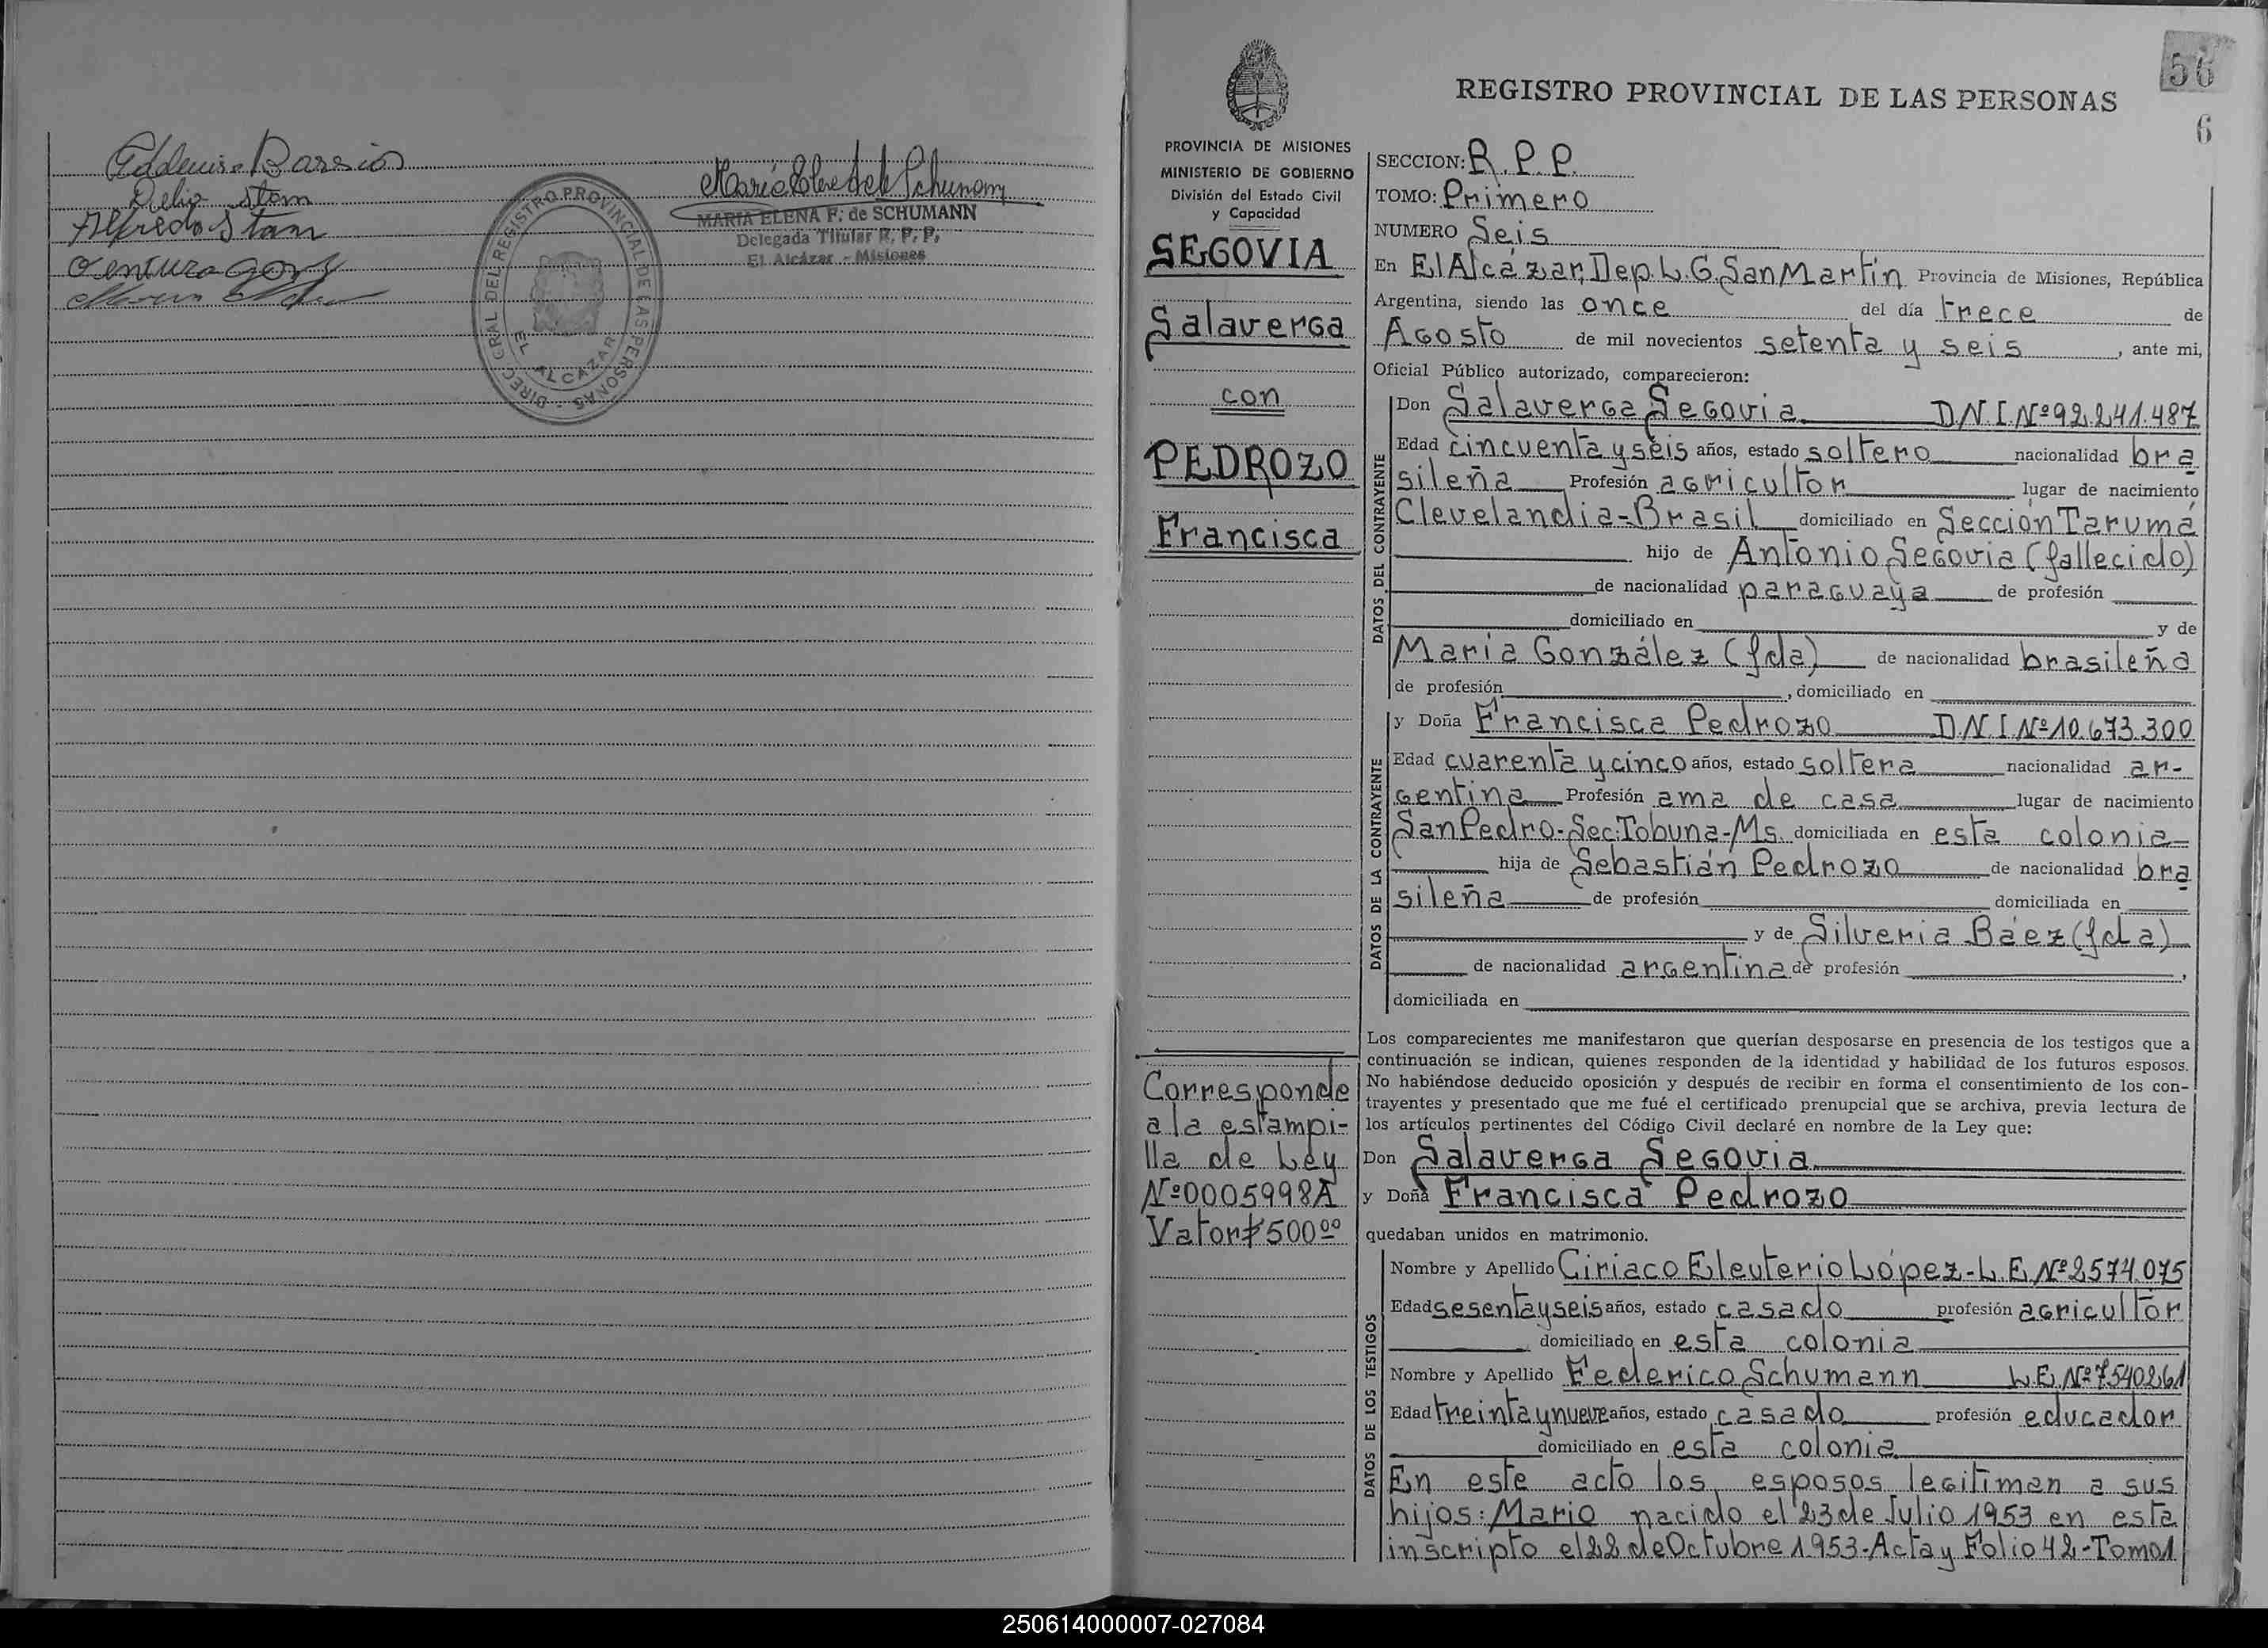 Delio Stam
Alfredo Stam
MARIA ELENA F. de SCHUMANN
Delegada Titular R. P. P.
El Alcázar - Misiones
DIREC. GRAL DEL REGISTRO PROVINCIAL DE LAS PERSONAS
EL ALCAZAR
56
6
REGISTRO PROVINCIAL DE LAS PERSONAS
PROVINCIA DE MISIONES
MINISTERIO DE GOBIERNO
División del Estado Civil
y Capacidad
SEGOVIA
Salaverga
con
PEDROZO
Francisca
Corresponde
a la estampi-
lla de Ley
Nº0005998A
Valor $500⁰⁰
SECCION: R.P.P.
TOMO: Primero
NUMERO Seis
En El Alcázar, Dep. L. G. San Martín Provincia de Misiones, República
Argentina, siendo las once del día trece de
Agosto de mil novecientos setenta y seis, ante mi,
Oficial Público autorizado, comparecieron:
DATOS DEL CONTRAYENTE
Don Salaverga Segovia D.N.I.Nº92.241.487
Edad cincuenta y seis años, estado soltero nacionalidad bra
sileña Profesión agricultor lugar de nacimiento
Clevelandia-Brasil domiciliado en Sección Tarumá
hijo de Antonio Segovia (fallecido)
de nacionalidad paraguaya de profesión
domiciliado en y de
María González (fda) de nacionalidad brasileña
de profesión , domiciliado en
DATOS DE LA CONTRAYENTE
y Doña Francisca Pedrozo D.N.I.Nº10.673.300
Edad cuarenta y cinco años, estado soltera nacionalidad ar-
gentina Profesión ama de casa lugar de nacimiento
San Pedro-Sec:Tobuna-Ms. domiciliada en esta colonia
hija de Sebastián Pedrozo de nacionalidad bra
sileña de profesión domiciliada en
y de Silveria Báez (fda)
de nacionalidad argentina de profesión ,
domiciliada en
Los comparecientes me manifestaron que querían desposarse en presencia de los testigos que a
continuación se indican, quienes responden de la identidad y habilidad de los futuros esposos.
No habiéndose deducido oposición y después de recibir en forma el consentimiento de los con-
trayentes y presentado que me fué el certificado prenupcial que se archiva, previa lectura de
los artículos pertinentes del Código Civil declaré en nombre de la Ley que:
Don Salaverga Segovia
y Doña Francisca Pedrozo
quedaban unidos en matrimonio.
DATOS DE LOS TESTIGOS
Nombre y Apellido Ciriaco Eleuterio López-L.E.Nº2574.075
Edad sesenta y seis años, estado casado profesión agricultor
domiciliado en esta colonia
Nombre y Apellido Federico Schumann L.E.Nº7540261
Edad treinta y nueve años, estado casado profesión educador
domiciliado en esta colonia
En este acto los esposos legitiman a sus
hijos: Mario nacido el 23 de Julio 1953 en esta
inscripto el 22 de Octubre 1953-Acta y Folio 42-Tomo1
250614000007-027084